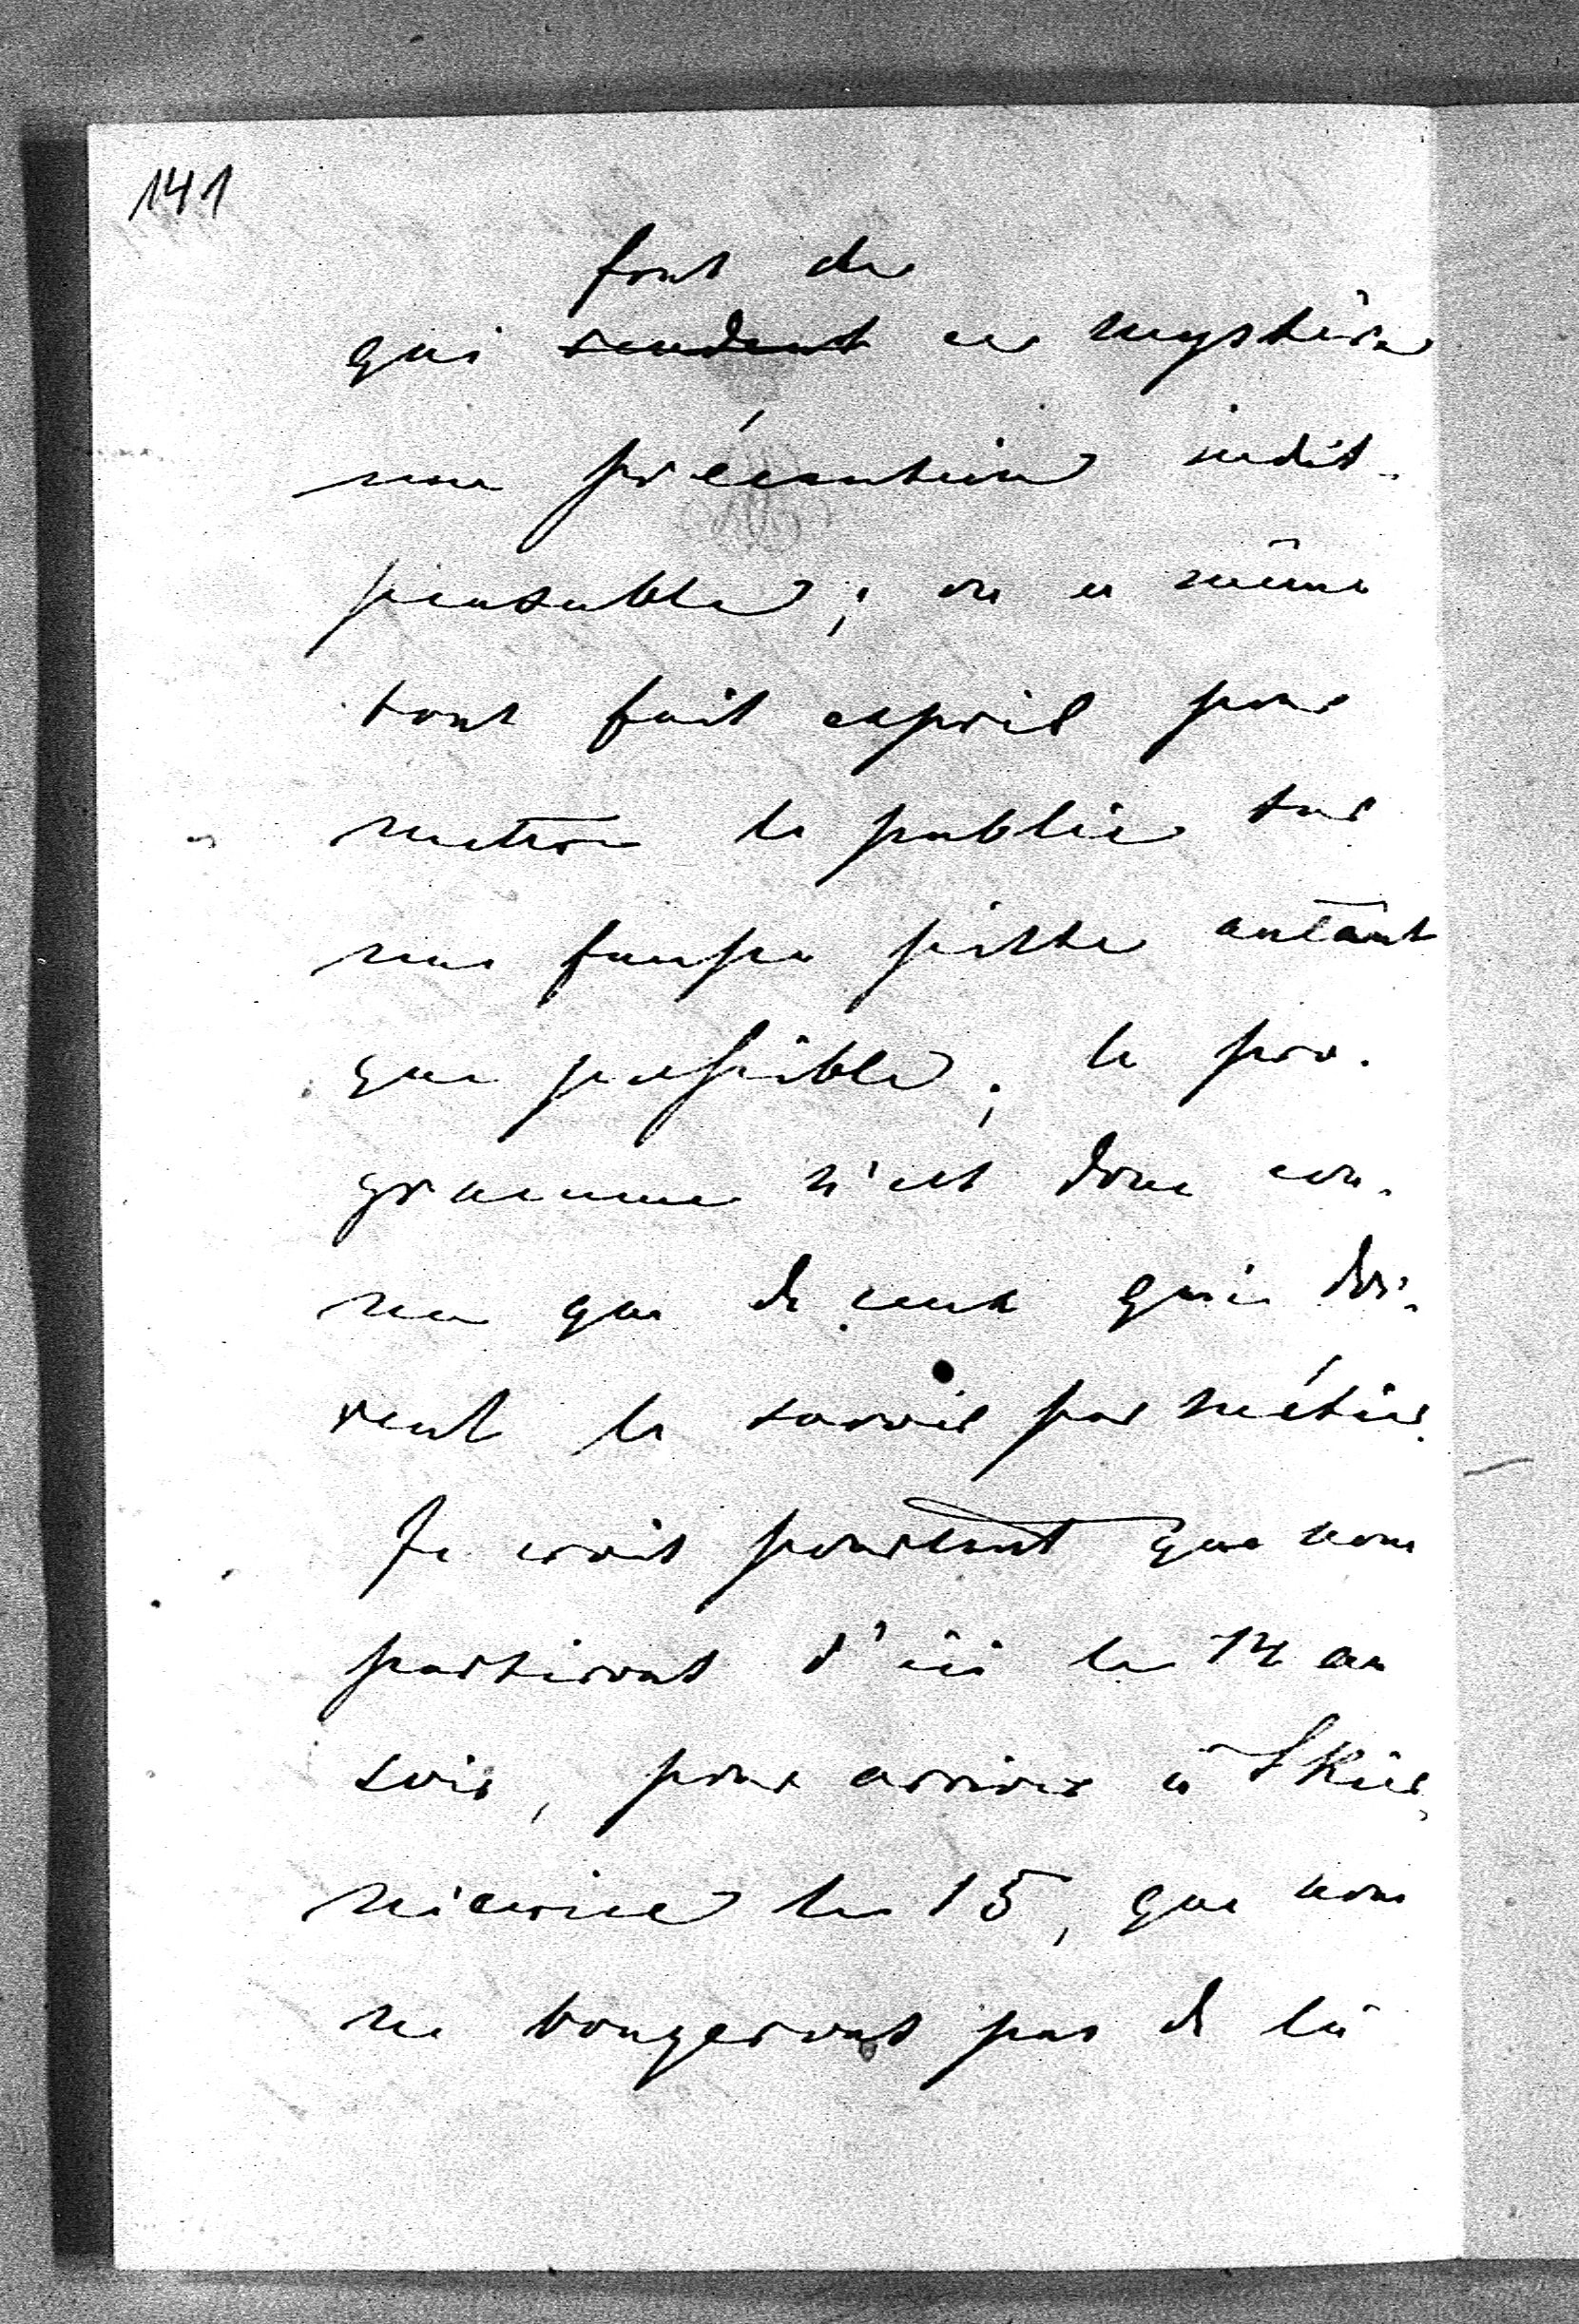 141
font de
qui rendent ce mystère
une précaution indis-
pensable; on a même
tout fait exprès pour
mettre le public sur
une fausse piste autant
que possible; le pro-
gramme n'est donc con-
nu que de ceux qui doi-
vent le savoir par métier.
Je crois pourtant que nous
partirons d'ici le 14 au
soir, pour arriver à Skier-
niewice le 15, que nous
ne bougerons pas de là